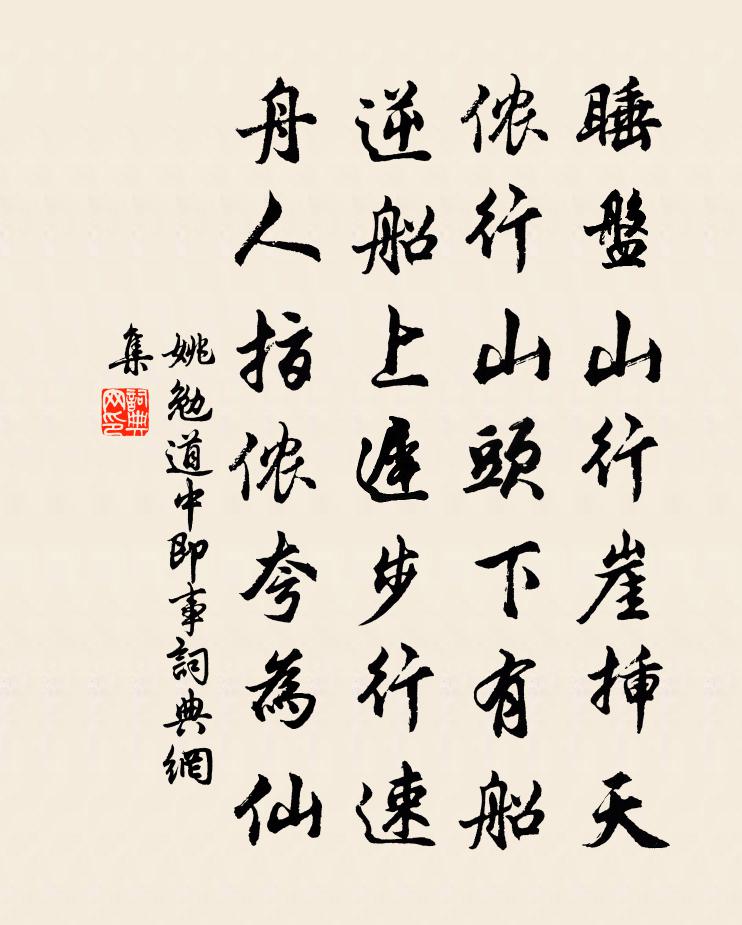 睡盤山行崖挿天
侬行山頭下有船
逆船上遅步行速
舟人指侬夸為仙
姚勉道中即事詞典網
集
詞典网印